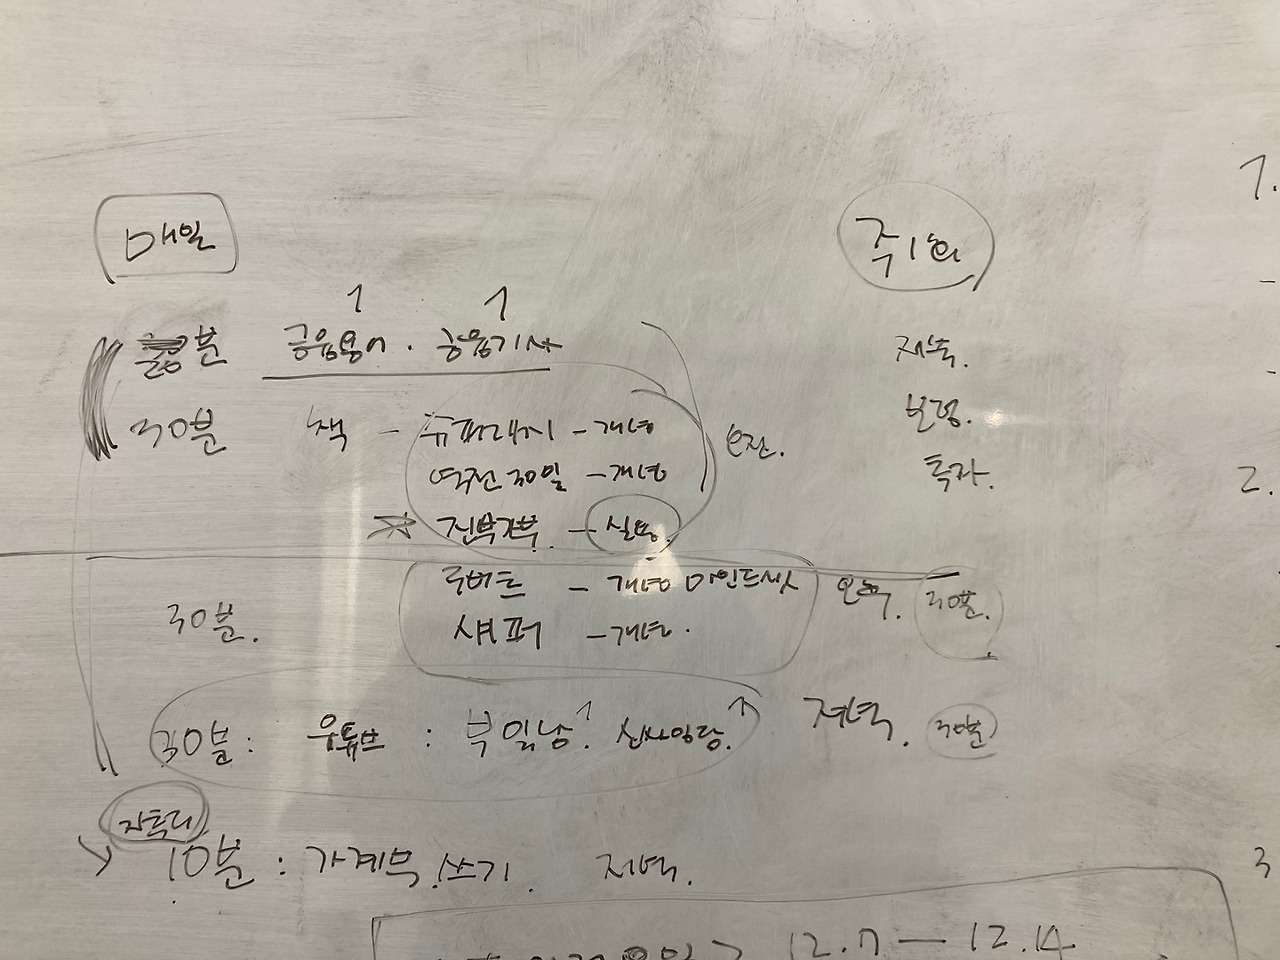 매일
주1회
1.
1 1
분 금융용어. 금융기사
30분 책 - 슈퍼래치 - 개념
역전 30일 - 개념
오전.
전부자부. - 실용.
저축.
보험.
투자.
2.
30분.
로버트 - 개념 마인드셋
섀퍼 - 개념.
오후. 30분.
30분: 유튜브 : 부일남. 신사임당. 저녁. 30분
자투리
10분: 가계부 쓰기. 저녁.
3
12.7 - 12.14